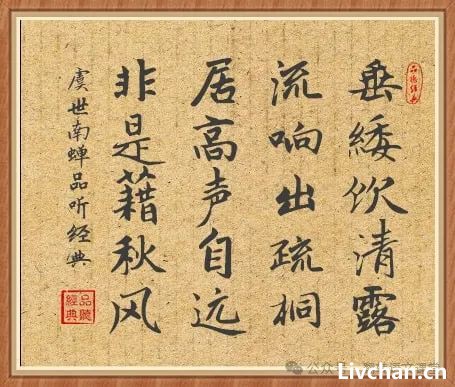 垂緌饮清露
流响出疏桐
居高声自远
非是藉秋风
虞世南蝉品听经典
品聽經典
公众号
Livchan.cn